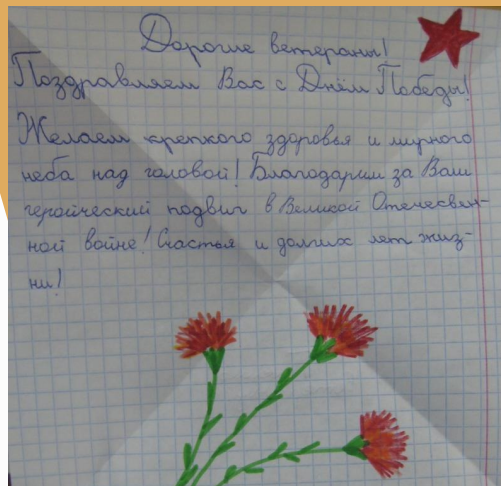 Дорогие ветераны!
Поздравляем Вас с Днём Победы!
Желаем крепкого здоровья и мирного
неба над головой! Благодарим за Ваш
героический подвиг в Великой Отечествен-
ной войне! Счастья и долгих лет жиз-
ни!